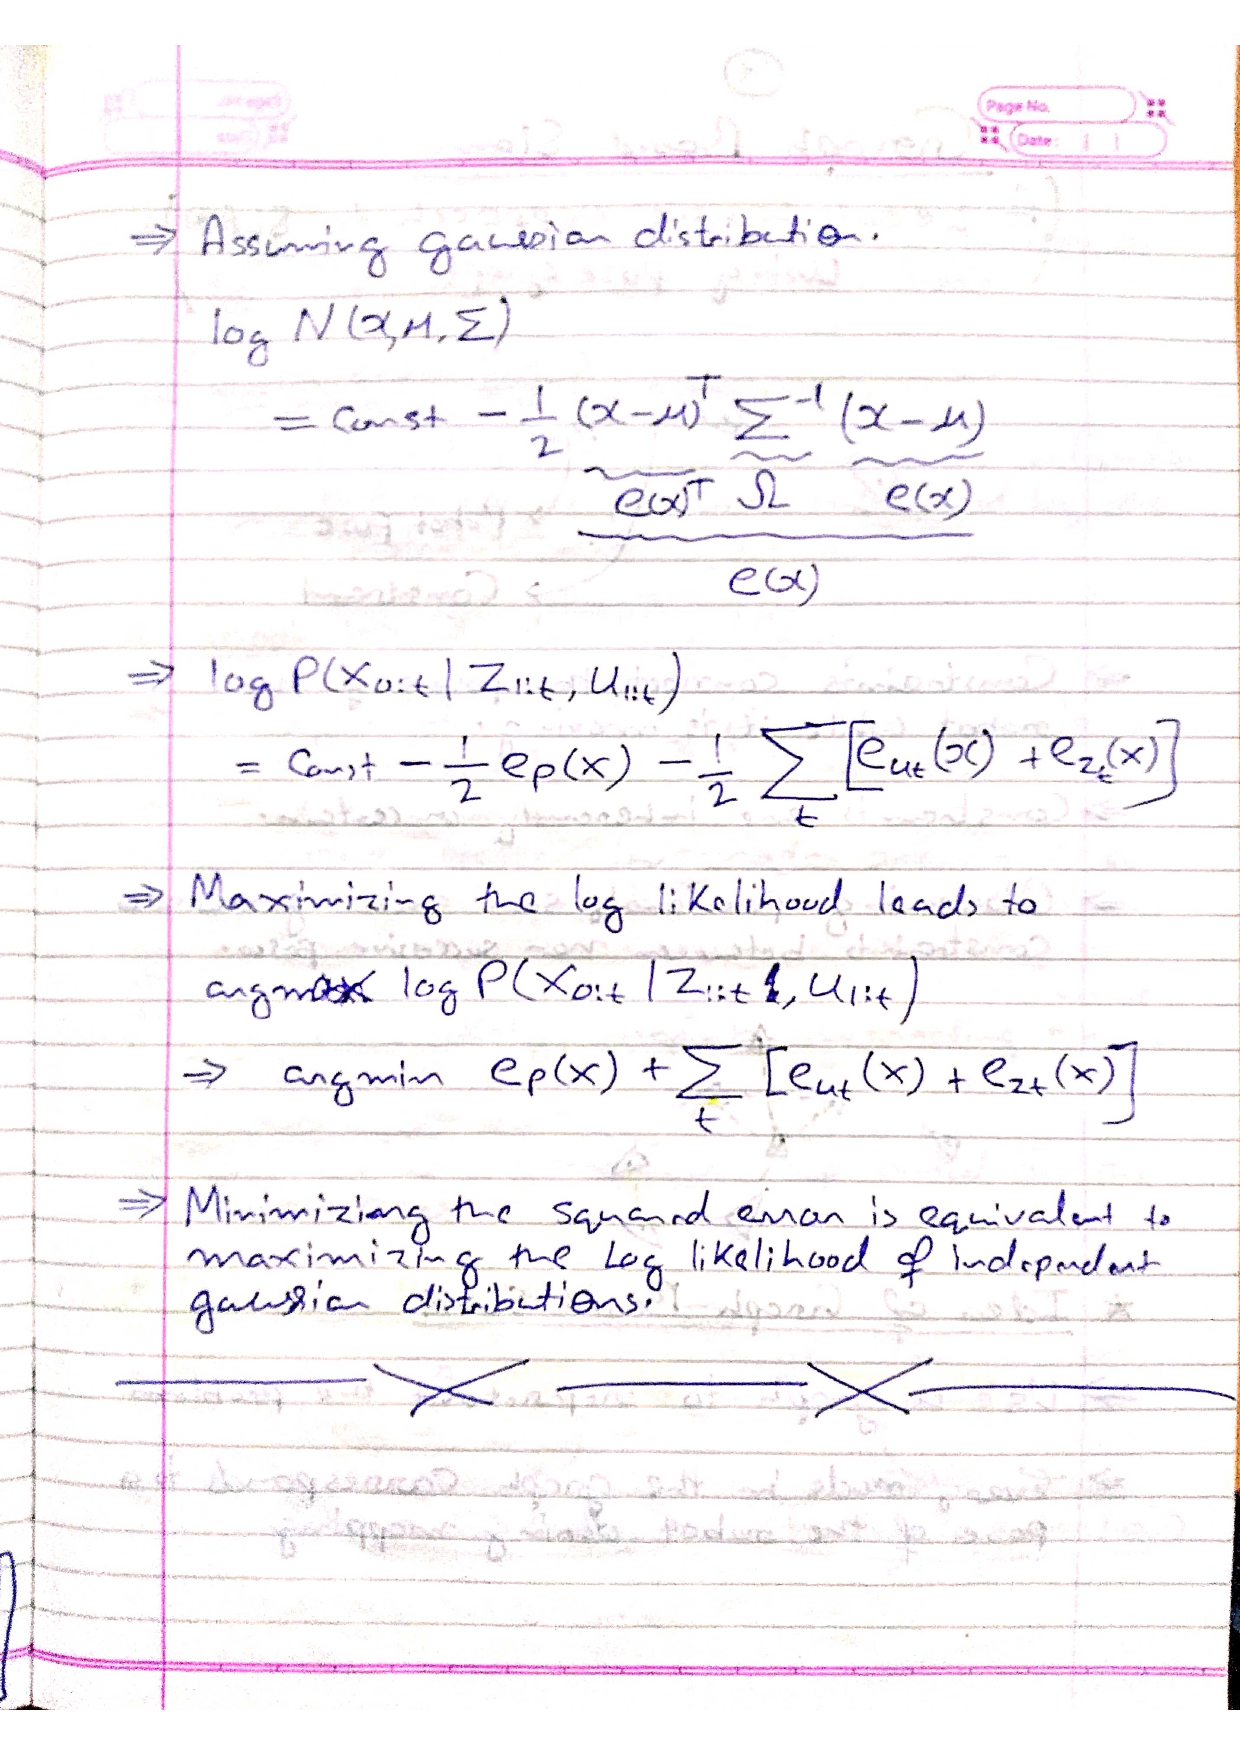 Page No.
Date:
⇒ Assuming gaussian distribution.
log N(x, μ, Σ)
= Const - 1/2 (x-μ)ᵀ Σ⁻¹ (x-μ)
e(x)ᵀ Ω e(x)
e(x)
⇒ log P(x₀:t | z₁:t, u₁:t)
= Const - 1/2 e_p(x) - 1/2 Σ_t [e_ut(x) + e_zt(x)]
⇒ Maximizing the log likelihood leads to
argmax log P(x₀:t | z₁:t, u₁:t)
⇒ argmin e_p(x) + Σ_t [e_ut(x) + e_zt(x)]
⇒ Minimizing the squared error is equivalent to
maximizing the Log likelihood of independent
gaussian distributions.